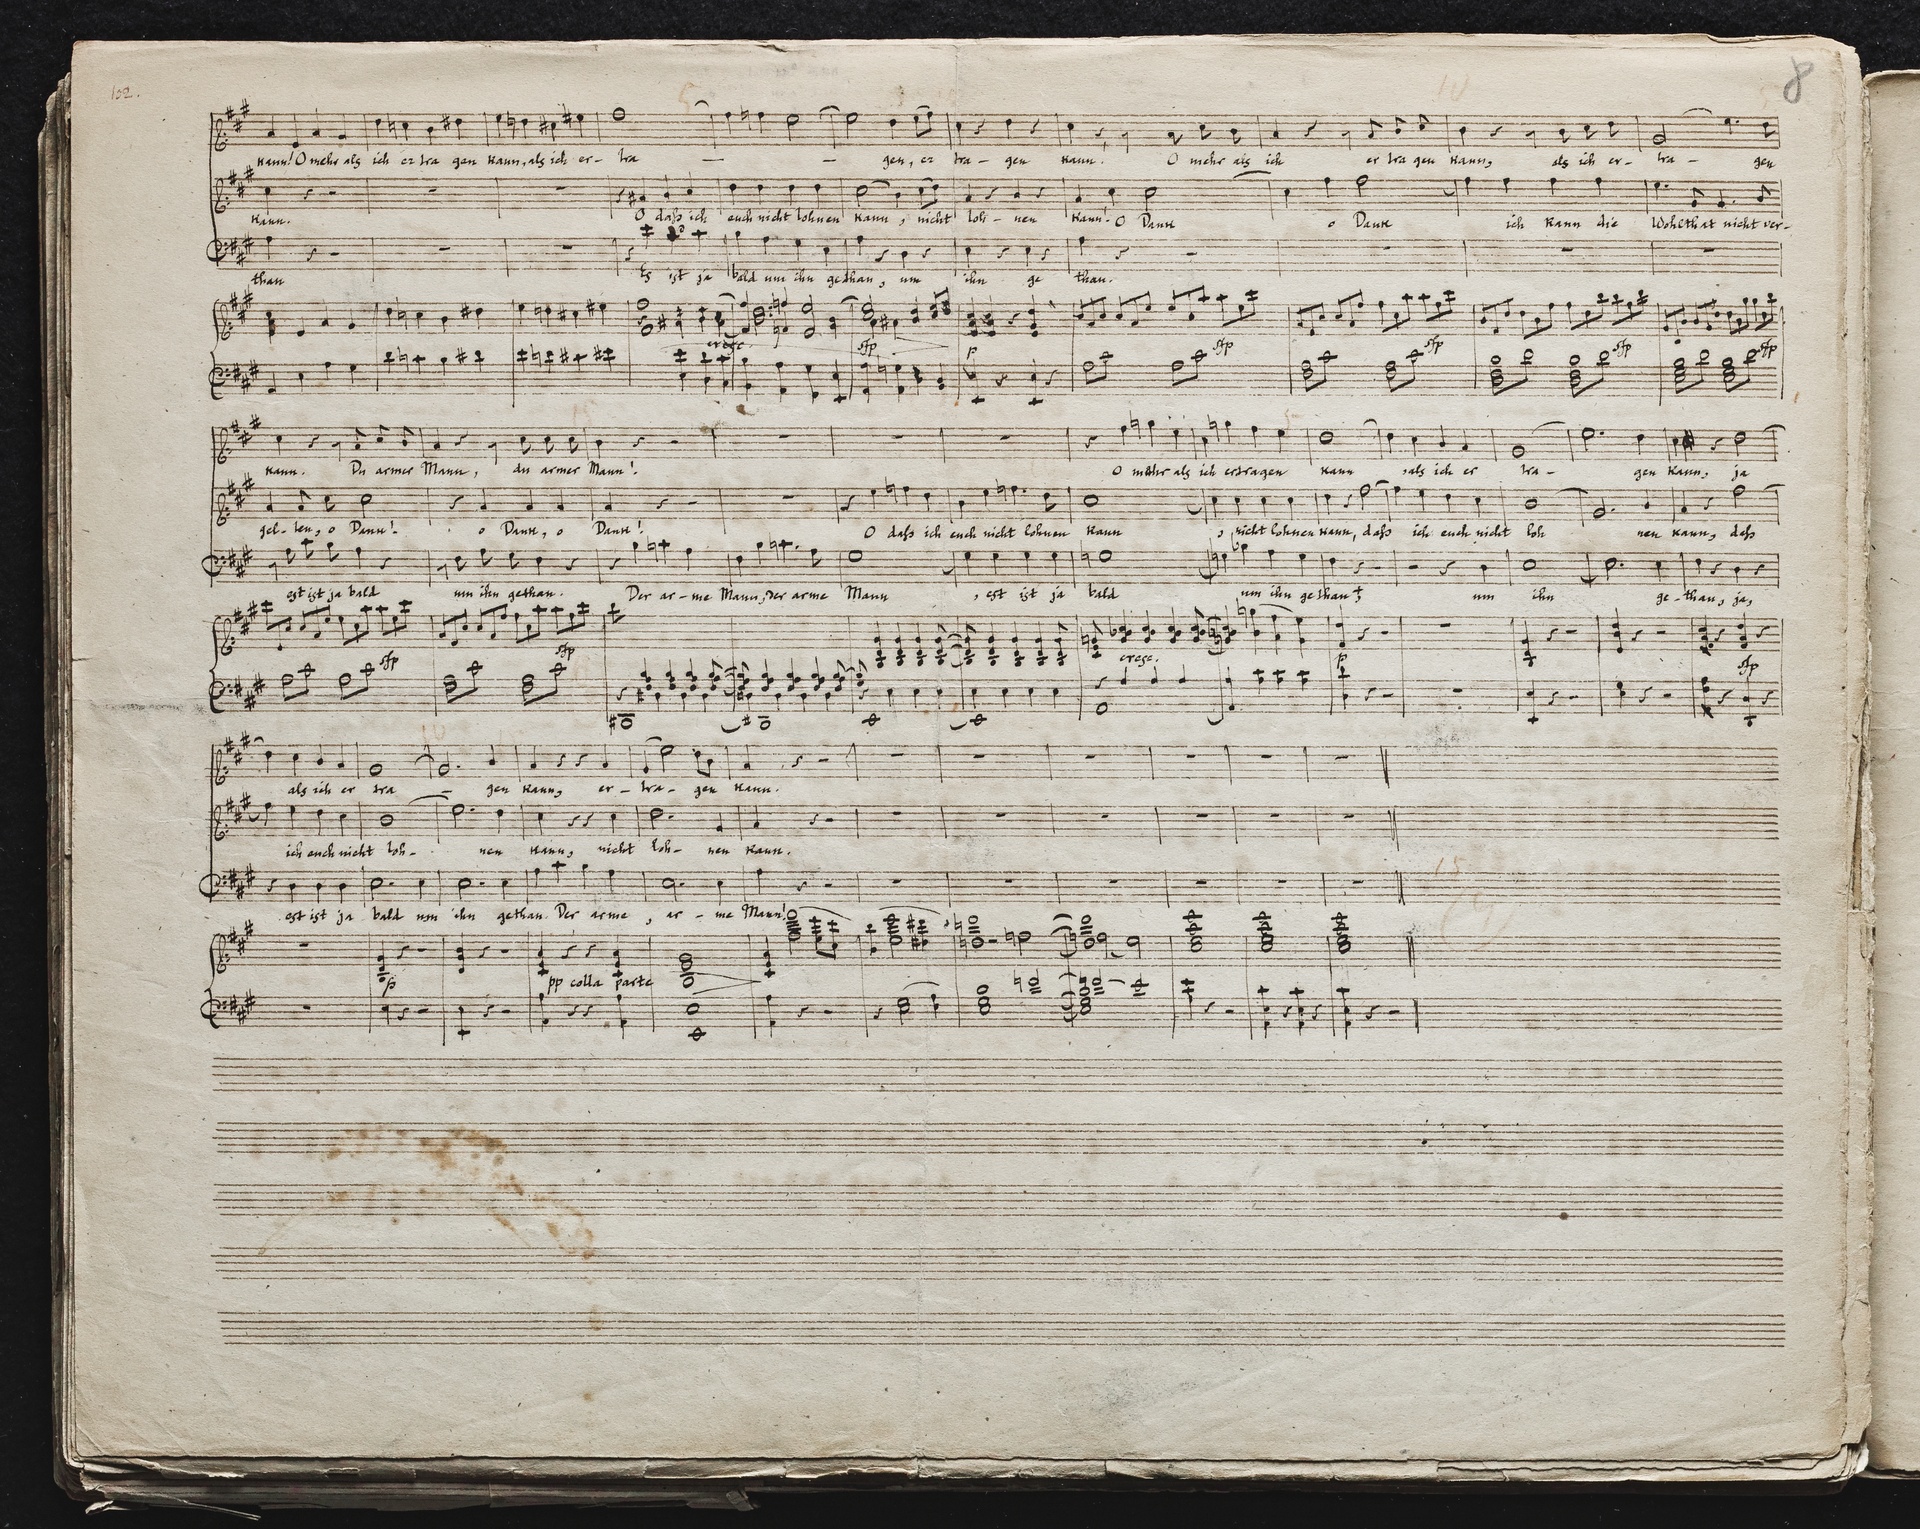 102.
8
kann! O mehr als ich er tra gen kann, als ich er- tra — — gen, er tra - gen kann. O mehr als ich er tra gen kann, als ich er- tra - gen
kann. O daß ich euch nicht lohnen kann, nicht loh - nen kann! O Dank o Dank ich kann die Wohlthat nicht ver-
than Es ist ja bald um ihn gethan, um ihn ge than.
cresc sfp p sfp sfp sfp sfp
kann. Du armer Mann, du armer Mann! O mehr als ich ertragen kann, als ich er tra - gen kann, ja
gel- ten, o Dank! o Dank, o Dank! O daß ich euch nicht lohnen kann, nicht lohnen kann, daß ich euch nicht loh nen kann, daß
est ist ja bald um ihn gethan. Der ar-me Mann, der arme Mann, est ist ja bald um ihn gethan, um ihn ge-than, ja,
sfp sfp cresc. p sfp
als ich er tra - gen kann, er - tra - gen kann.
ich euch nicht loh- nen kann, nicht loh- nen kann.
est ist ja bald um ihn gethan Der arme, ar - me Mann!
p pp colla parte